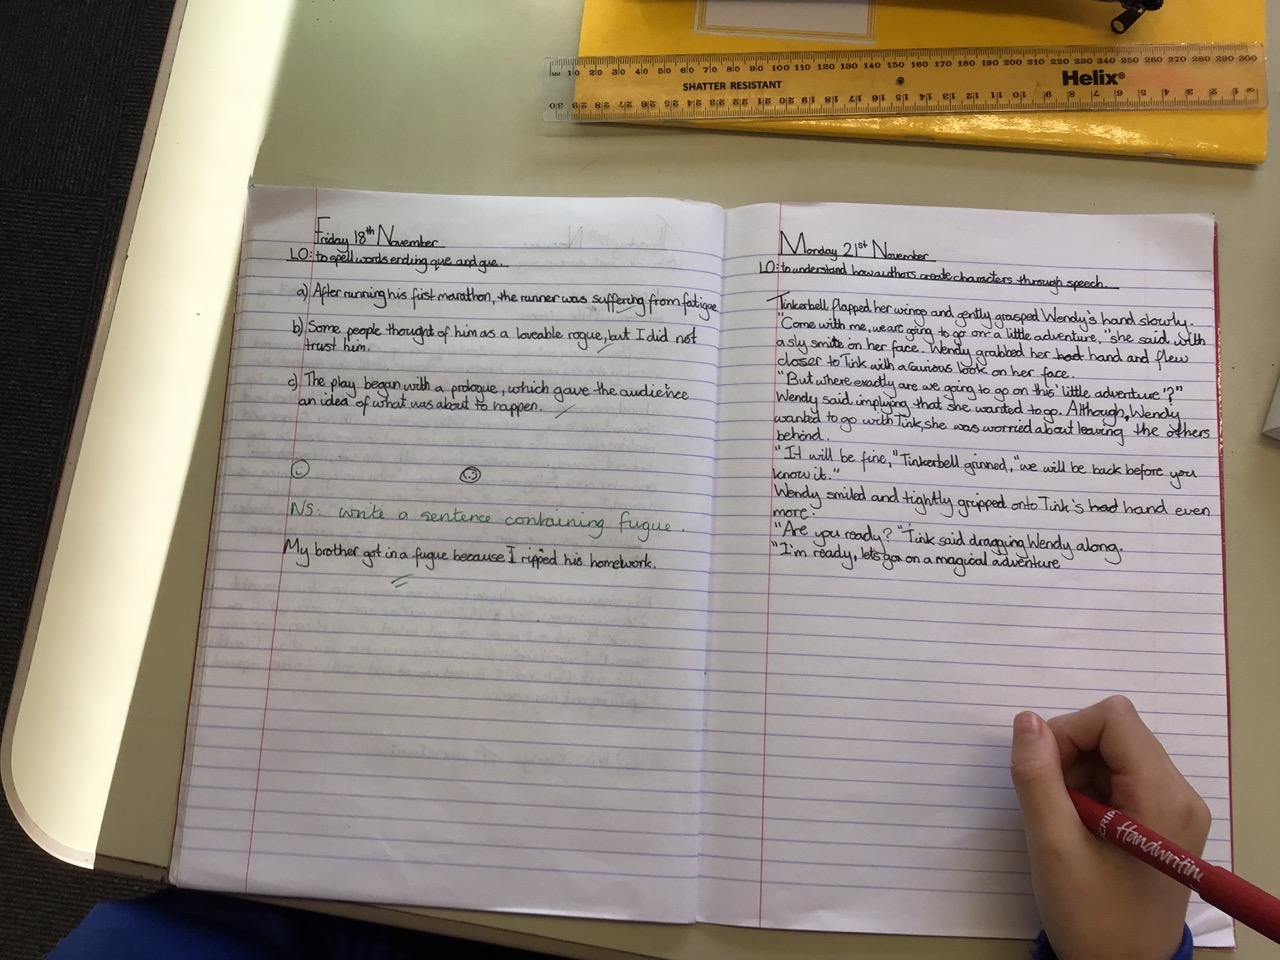 MM 10 20 30 40 50 60 70 80 90 100 110 120 130 140 150 160 170 180 190 200 210 220 230 240 250 260 270 280 290 300
SHATTER RESISTANT
Helix®
Friday 18th November
LO: to spell words ending que and gue.
a) After running his first marathon, the runner was suffering from fatigue.
b) Some people thought of him as a loveable rogue, but I did not
trust him.
c) The play began with a prologue, which gave the audience
an idea of what was about to happen.
NS: Write a sentence containing fugue.
My brother got in a fugue because I ripped his homework.
Monday 21st November
LO: to understand how authors create characters through speech.
Tinkerbell flapped her wings and gently grasped Wendy's hand slowly.
"Come with me, we are going to go on a little adventure," she said with
a sly smile on her face. Wendy grabbed her had hand and flew
closer to Tink with a curious look on her face.
"But where exactly are we going to go on this 'little adventure'?"
Wendy said implying that she wanted to go. Although, Wendy
wanted to go with Tink, she was worried about leaving the others
behind.
"It will be fine," Tinkerbell grinned, "we will be back before you
know it."
Wendy smiled and tightly gripped onto Tink's had hand even
more.
"Are you ready?" Tink said dragging Wendy along.
"I'm ready, lets go on a magical adventure
SCRIP
Handwritin